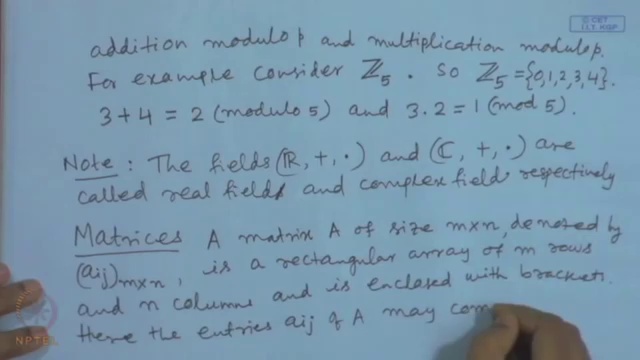 © CET
I.I.T. KGP
addition modulo p and multiplication modulo p.
For example consider ℤ₅. So ℤ₅ = {0,1,2,3,4}.
3+4 = 2 (modulo 5) and 3.2 = 1 (mod 5).
Note: The fields (ℝ, +, ·) and (ℂ, +, ·) are
called real field and complex field respectively
Matrices A matrix A of size m×n, denoted by
(aij)m×n, is a rectangular array of m rows
and n columns and is enclosed with brackets.
Here the entries aij of A may com
NPTEL